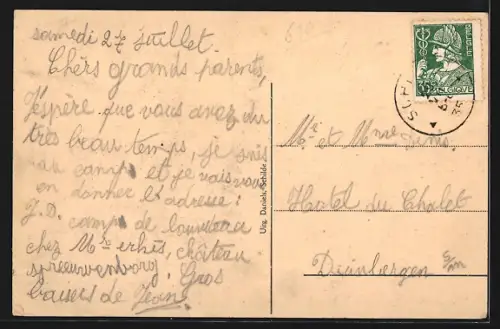 samedi 27 juillet.
Chèrs grands parents,
J'espère que vous avez du
très beau temps, je suis
au camps et je vais vous
en donner l'adresse:
J.D. camps de louveteau
chez Mr erhés, château
spreeuwenborg. Gros
baisers de Jean.
Uitg. Daniels, Schilde
BELGIQUE
35
Mr et Mme
Hotel du Chalet
Duinbergen
s/m